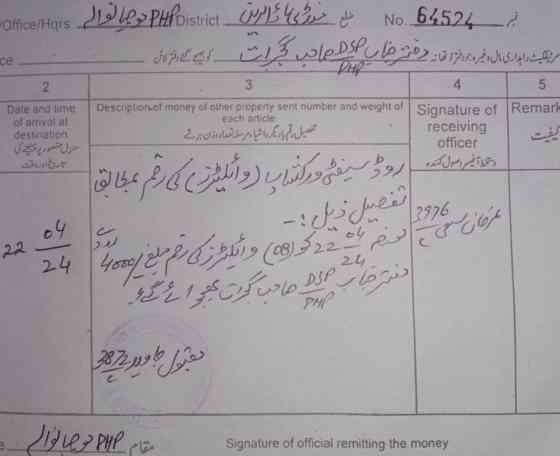 /Office/Hqrs PHP District منڈی بہاؤالدین ضلع No. 64524 نمبر
دفتر جناب DSP/PHP صاحب گجرات
2 3 4 5
Date and time of arrival at destination
Description of money of other property sent number and weight of each article
Signature of receiving officer
Remark
کیفیت
روڈ سیفٹی ورکشاپ (وائلیٹرز) کی رقم بمطابق
تفصیل ذیل :-
22 04/24
مورخہ 22 04/24 کو (08) وائلیٹرز کی رقم مبلغ /4000
دفتر جناب DSP/PHP صاحب گجرات بھجوائے گئے۔
3976
3872
PHP مقام
Signature of official remitting the money